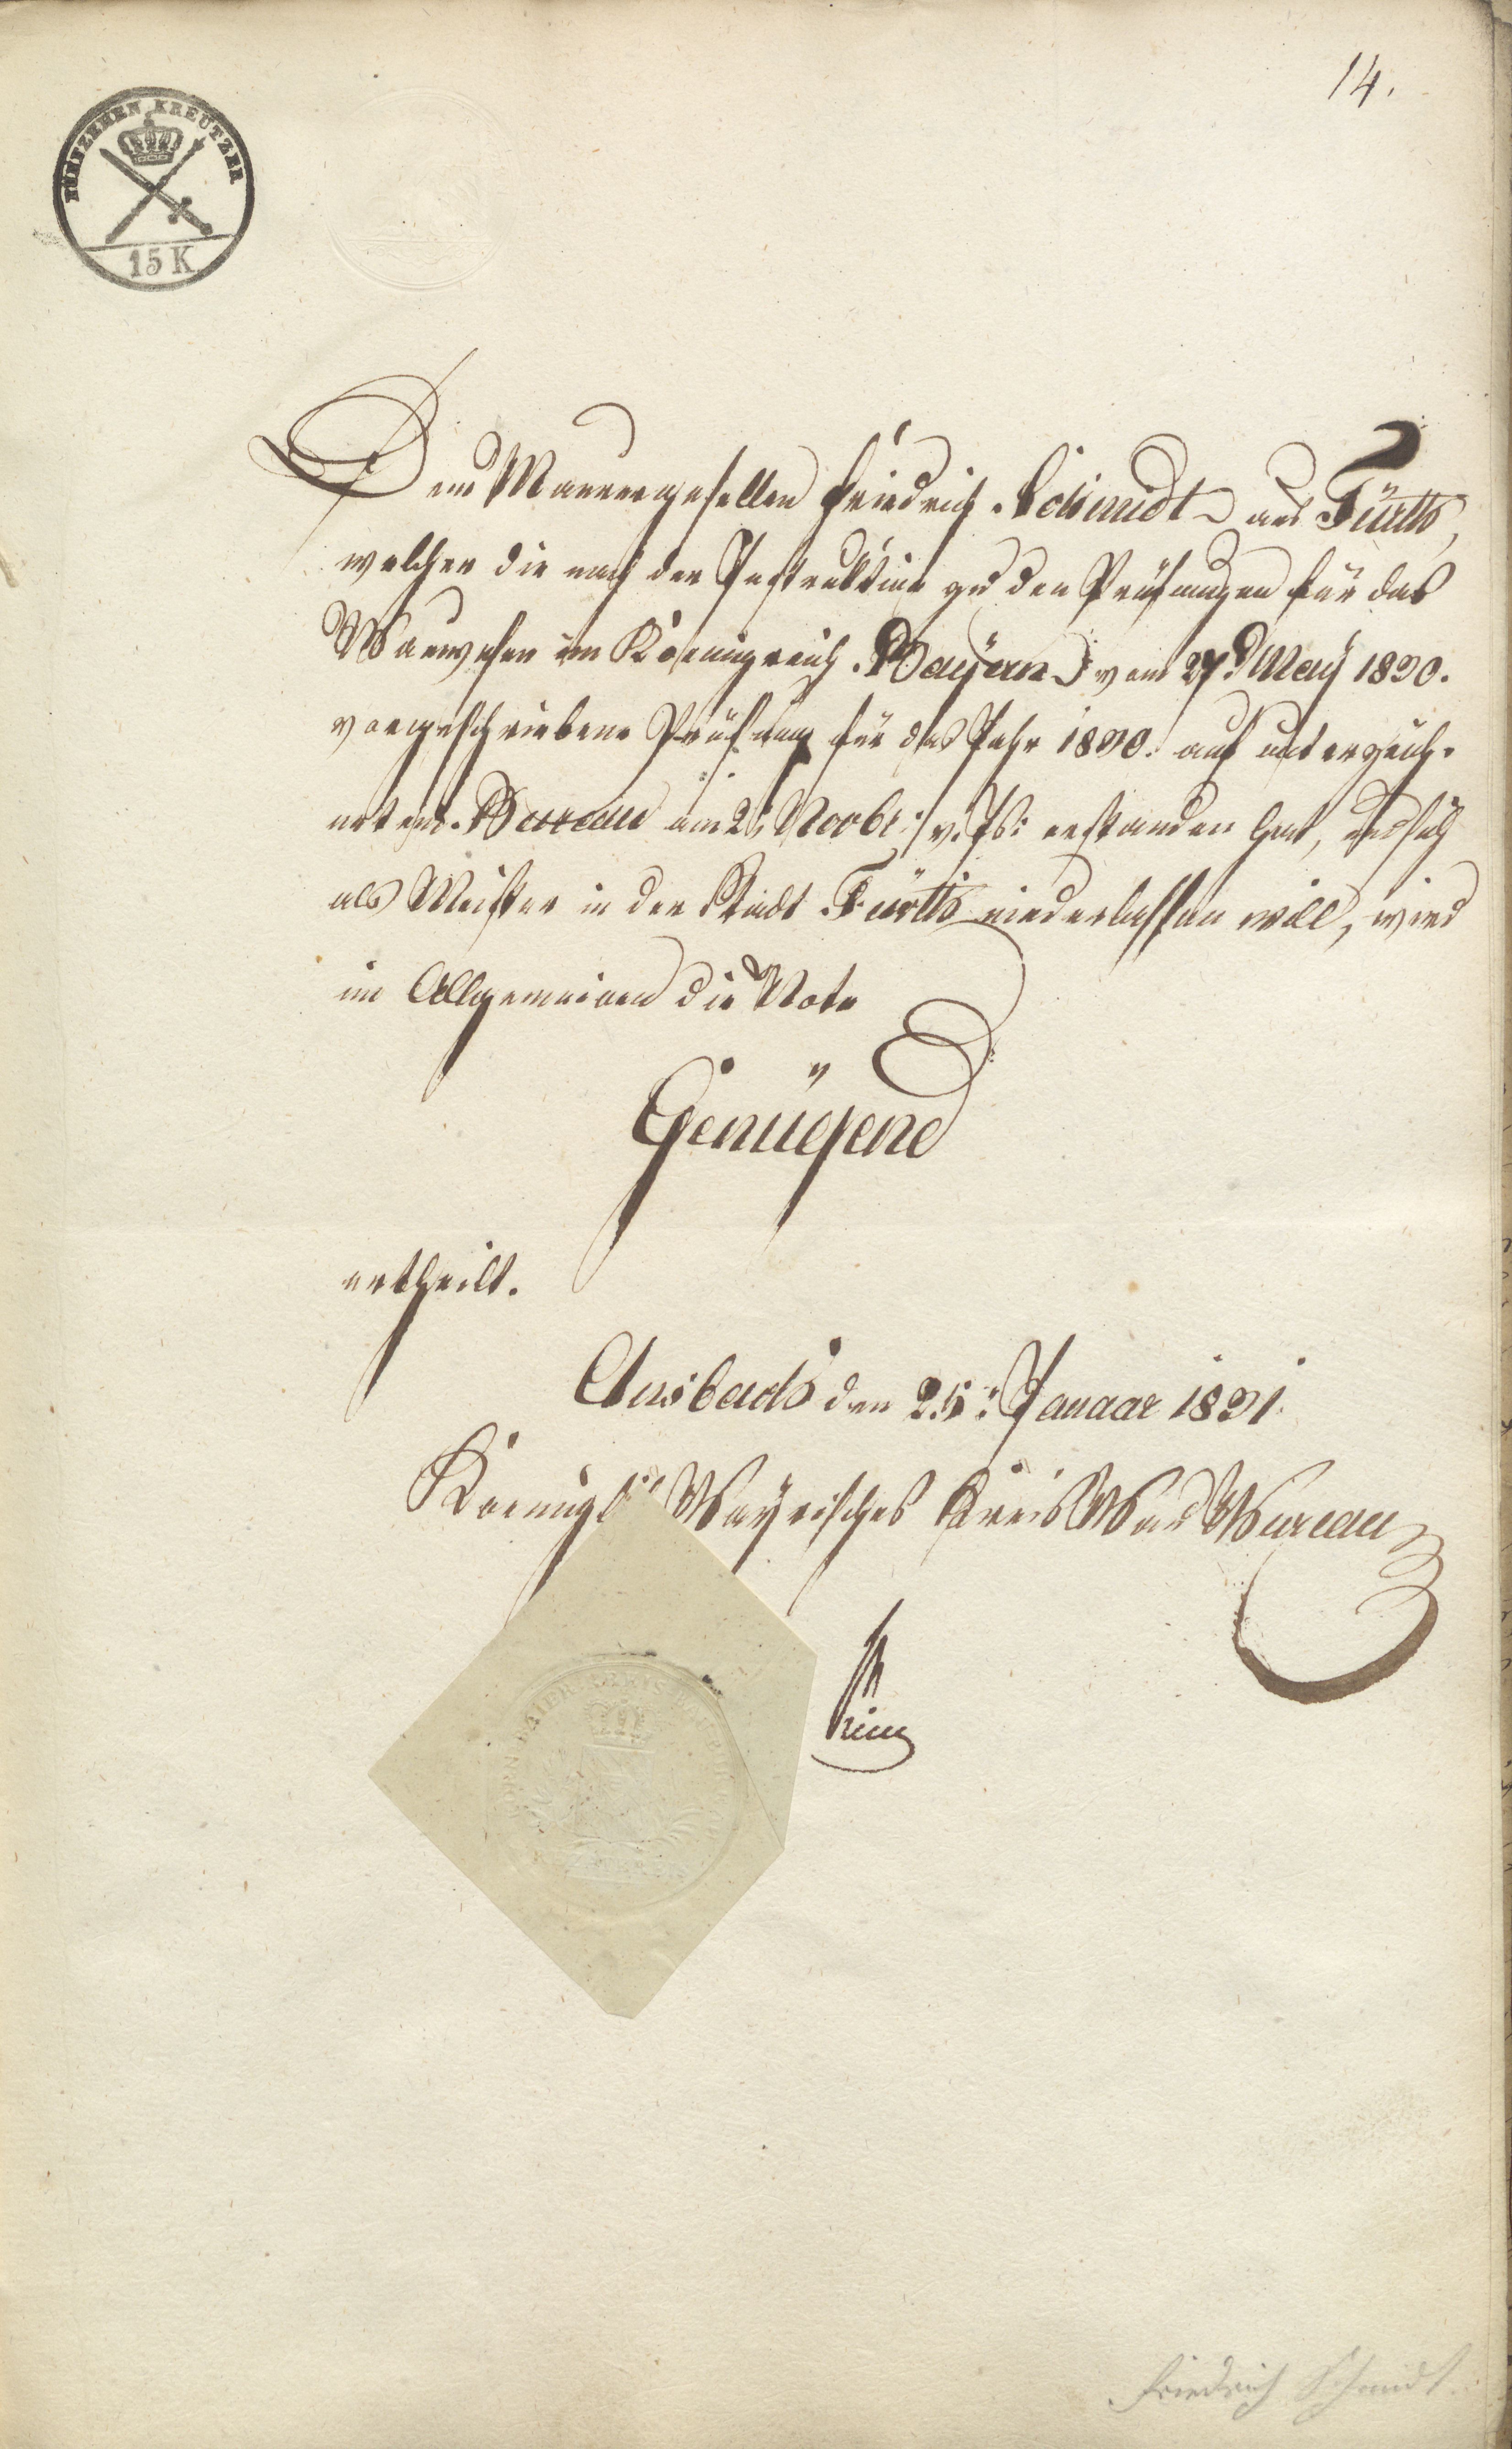 14.
FÜNFZEHEN KREUTZER
15 K
Dem Maurergesellen Friedrich Schmidt aus Fürth,
welcher die nach der Instruktion zu den Prüfungen für das
Bauwesen im Königreich Bayern vom 27. May 1830.
vorgeschriebene Prüfung für das Jahr 1830. auf unterzeich-
netem Bureau am 2. Novbr: v. Js: erstanden hat, und sich
als Meister in der Stadt Fürth niederlassen will, wird
im Allgemeinen die Note
Genügend
ertheilt.
Ansbach den 25. Januar 1831.
Koenigl. Bayrisches Kreis Bau Bureau
Friedrich Schmidt.